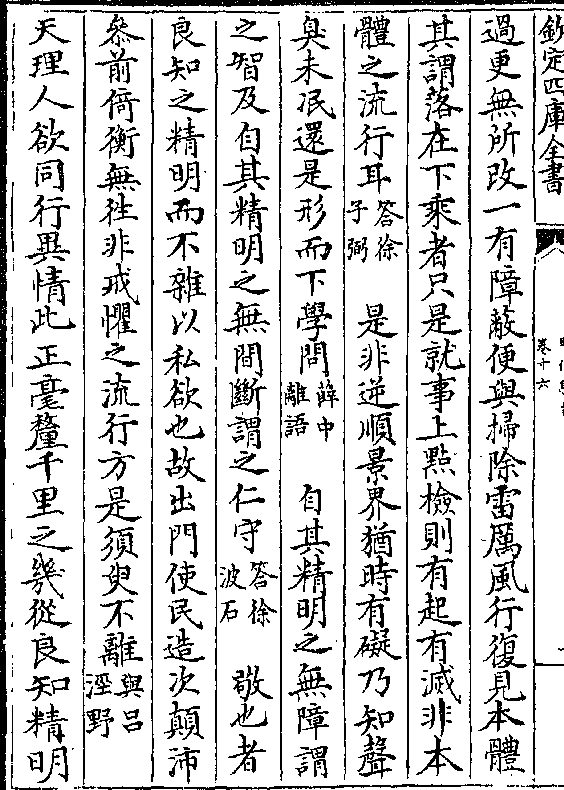 欽定四庫全書
卷十六
過更無所改一有障蔽便與掃除雷厲風行復見本體
其謂落在下乘者只是就事上㸃檢則有起有滅非本
體之流行耳答徐子弼 是非逆順景界猶時有礙乃知聲
臭未泯還是形而下學問薛中離語 自其精明之無障謂
之智及自其精明之無間斷謂之仁守答徐波石 敬也者
良知之精明而不雜以私欲也故出門使民造次顛沛
叅前倚衡無往非戒懼之流行方是須臾不離與呂涇野
天理人欲同行異情此正毫釐千里之幾從良知精明